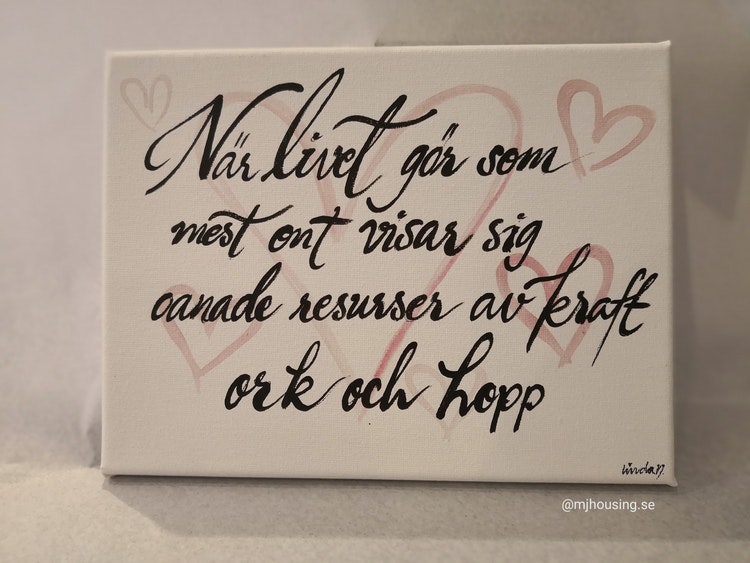 När livet gör som
mest ont visar sig
oanade resurser av kraft
ork och hopp
Linda N.
@mjhousing.se